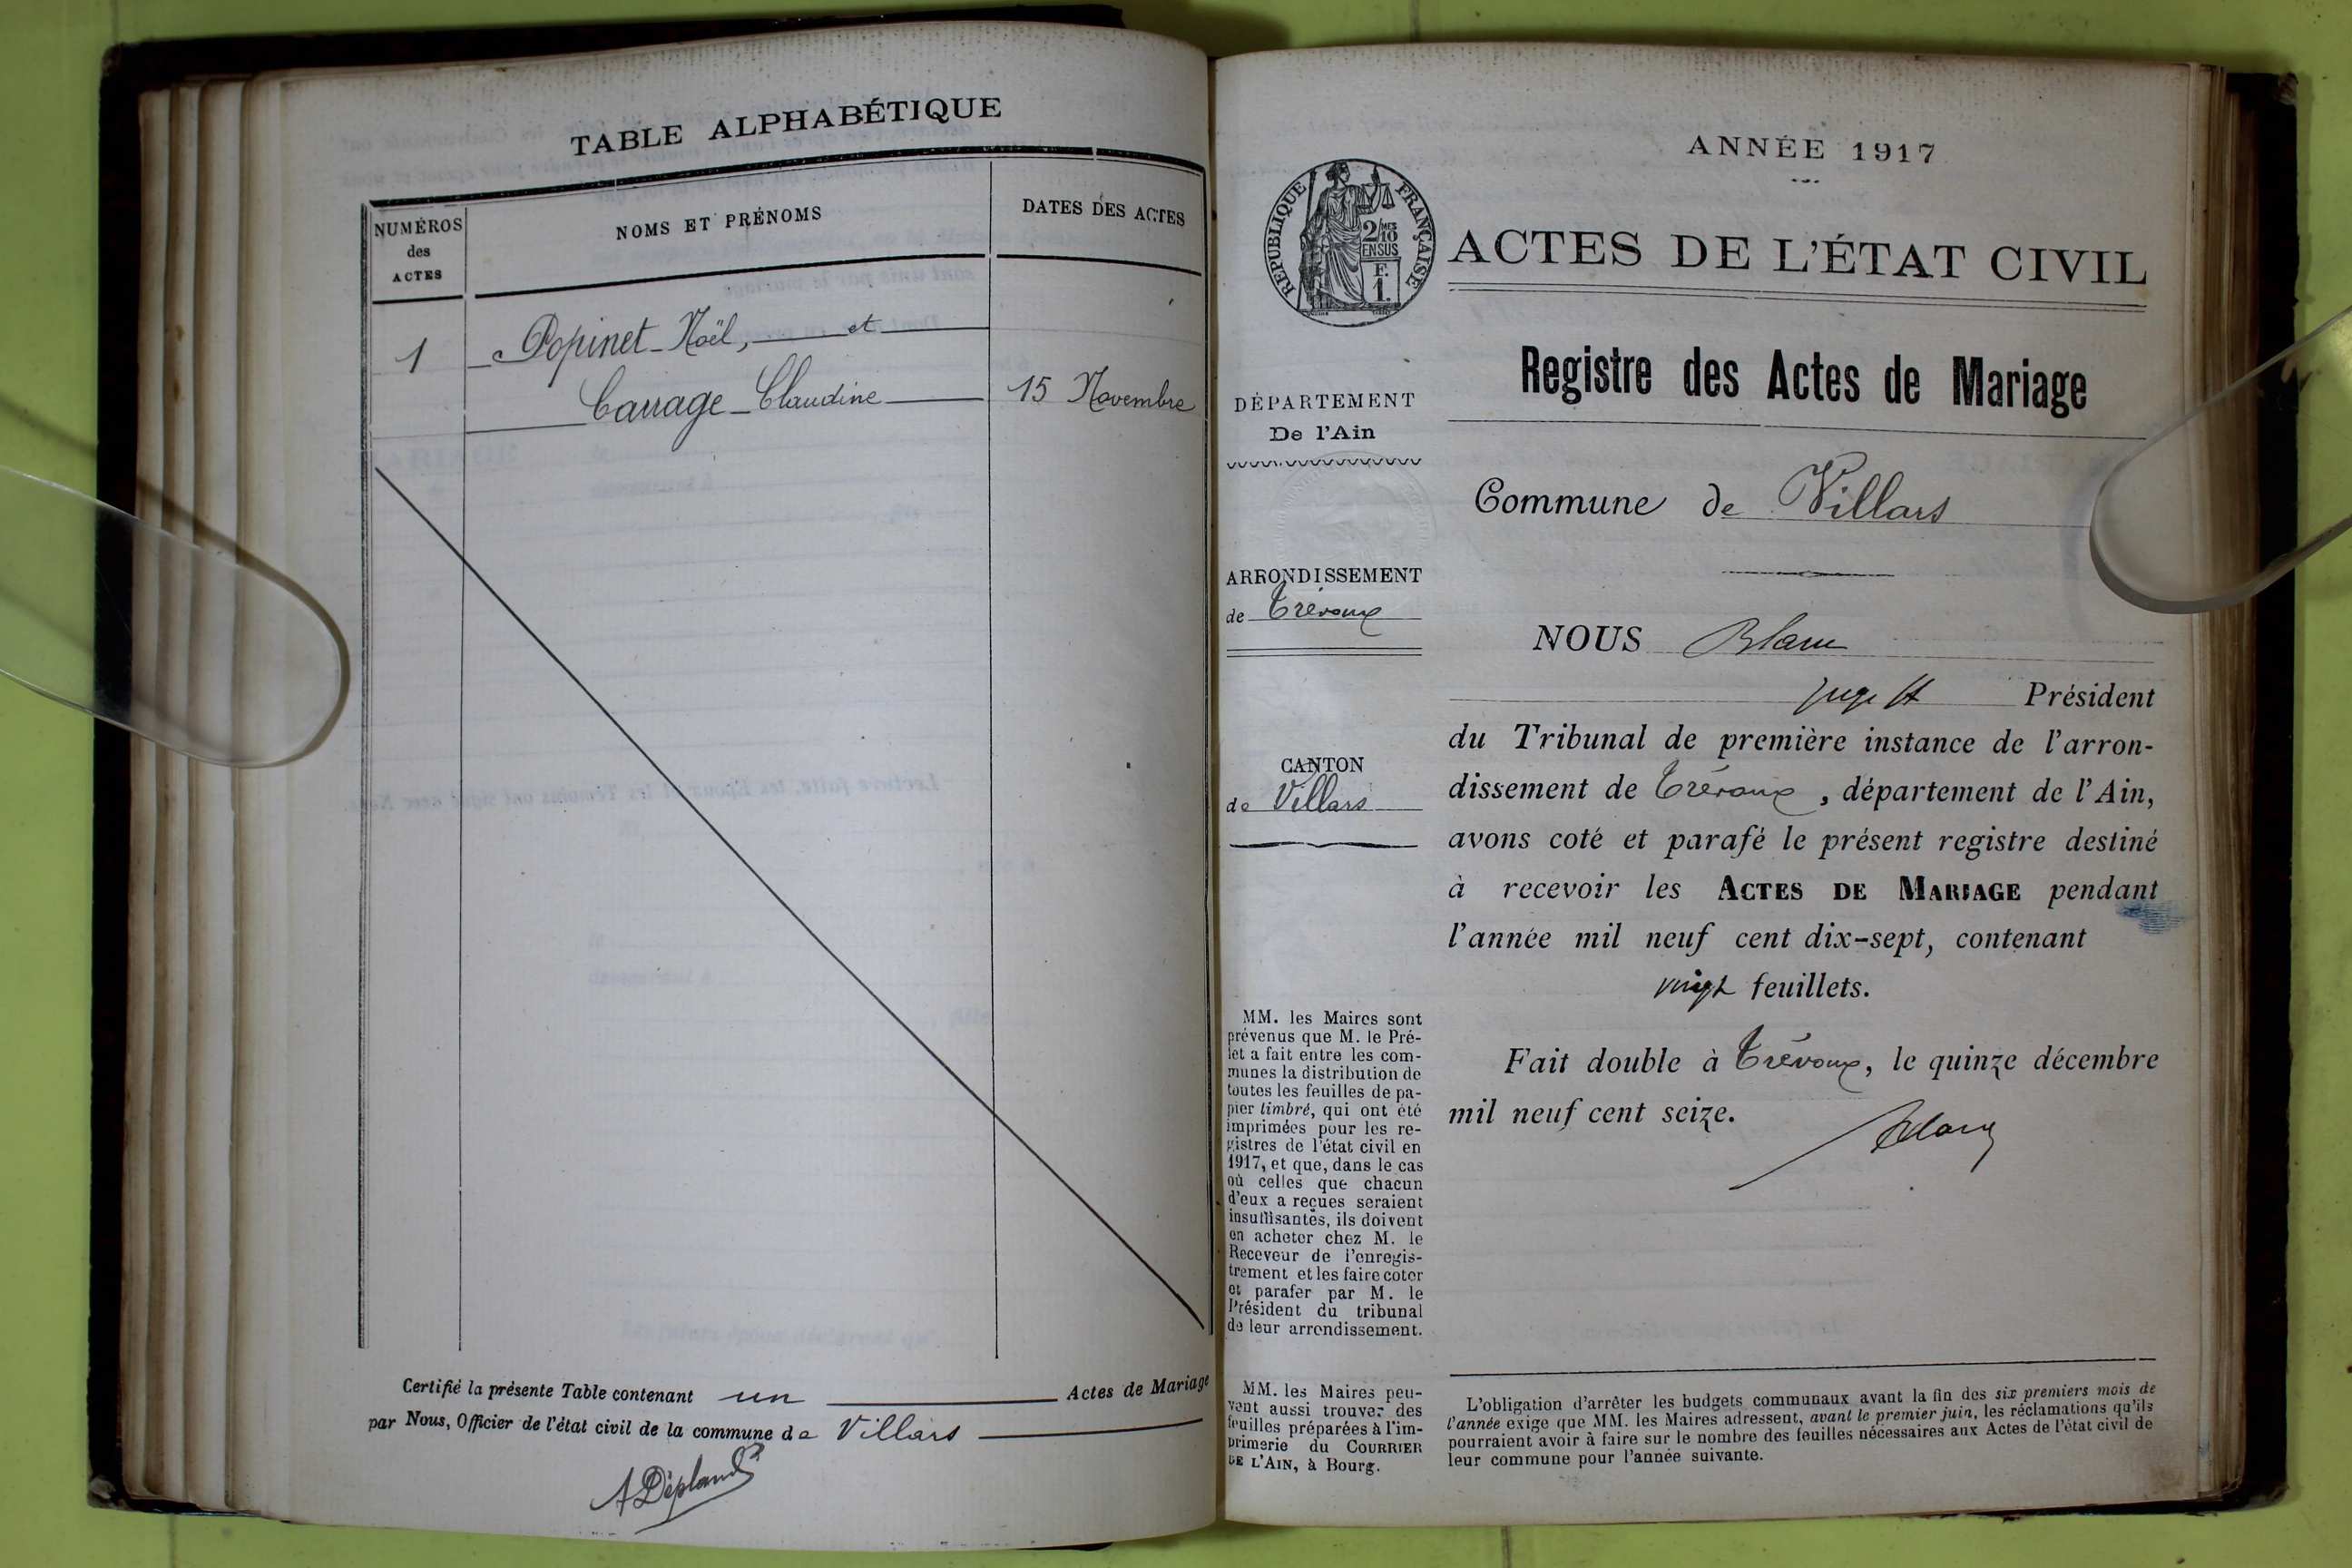 TABLE ALPHABÉTIQUE
NUMÉROS
des
ACTES
NOMS ET PRÉNOMS
DATES DES ACTES
1
Popinet Noël, et
Carrage Claudine
15 Novembre
Certifié la présente Table contenant un Actes de Mariage
par Nous, Officier de l'état civil de la commune de Villars
ANNÉE 1917
RÉPUBLIQUE FRANÇAISE
2/10 MES
EN SUS
F.
1.
ACTES DE L'ÉTAT CIVIL
Registre des Actes de Mariage
DÉPARTEMENT
De l'Ain
Commune de Villars
ARRONDISSEMENT
de Trévoux
NOUS Blanc
juge ff Président
du Tribunal de première instance de l'arron-
dissement de Trévoux, département de l'Ain,
avons coté et parafé le présent registre destiné
à recevoir les ACTES DE MARIAGE pendant
l'année mil neuf cent dix-sept, contenant
vingt feuillets.
Fait double à Trévoux, le quinze décembre
mil neuf cent seize.
Blanc
CANTON
de Villars
MM. les Maires sont
prévenus que M. le Pré-
fet a fait entre les com-
munes la distribution de
toutes les feuilles de pa-
pier timbré, qui ont été
imprimées pour les re-
gistres de l'état civil en
1917, et que, dans le cas
où celles que chacun
d'eux a reçues seraient
insuffisantes, ils doivent
en acheter chez M. le
Receveur de l'enregis-
trement et les faire coter
et parafer par M. le
Président du tribunal
de leur arrondissement.
MM. les Maires peu-
vent aussi trouver des
feuilles préparées à l'im-
primerie du COURRIER
DE L'AIN, à Bourg.
L'obligation d'arrêter les budgets communaux avant la fin des six premiers mois de
l'année exige que MM. les Maires adressent, avant le premier juin, les réclamations qu'ils
pourraient avoir à faire sur le nombre des feuilles nécessaires aux Actes de l'état civil de
leur commune pour l'année suivante.